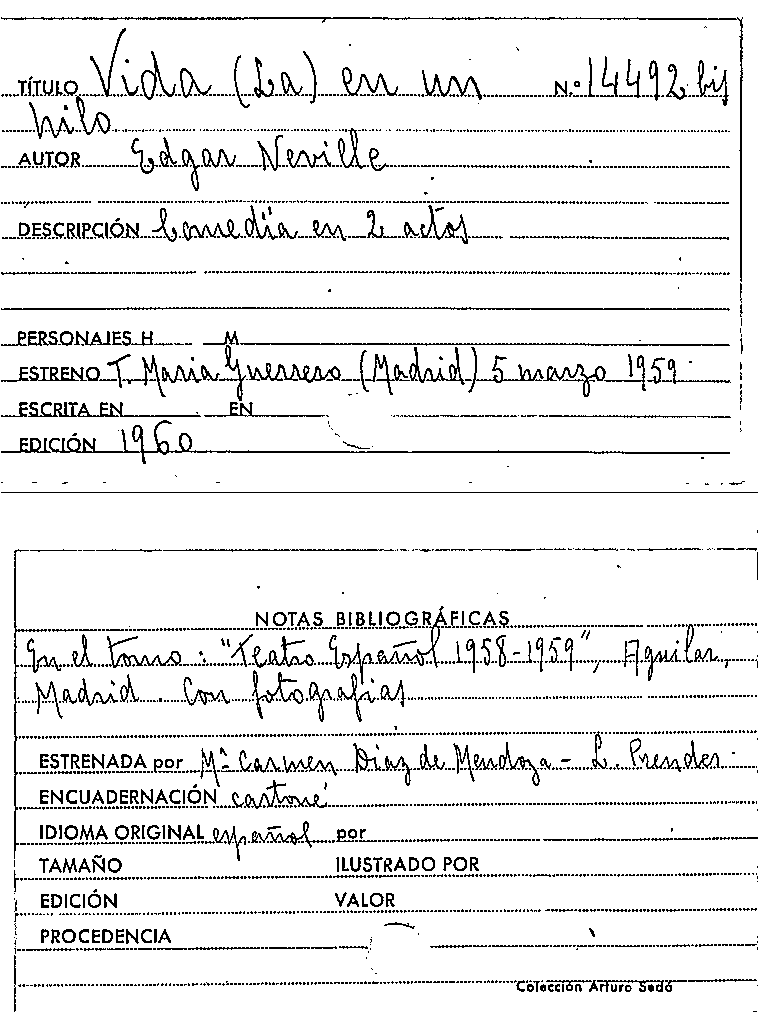 TÍTULO Vida (La) en un N.º 14492 bis
hilo
AUTOR Edgar Neville
DESCRIPCIÓN Comedia en 2 actos
PERSONAJES H M
ESTRENO T. Maria Guerrero (Madrid) 5 marzo 1959
ESCRITA EN EN
EDICIÓN 1960
NOTAS BIBLIOGRÁFICAS
En el tomo: "Teatro Español 1958-1959", Aguilar,
Madrid. Con fotografias
ESTRENADA por Mª Carmen Diaz de Mendoza - L. Prendes
ENCUADERNACIÓN cartoné
IDIOMA ORIGINAL español por
TAMAÑO ILUSTRADO POR
EDICIÓN VALOR
PROCEDENCIA
Colección Arturo Sedó